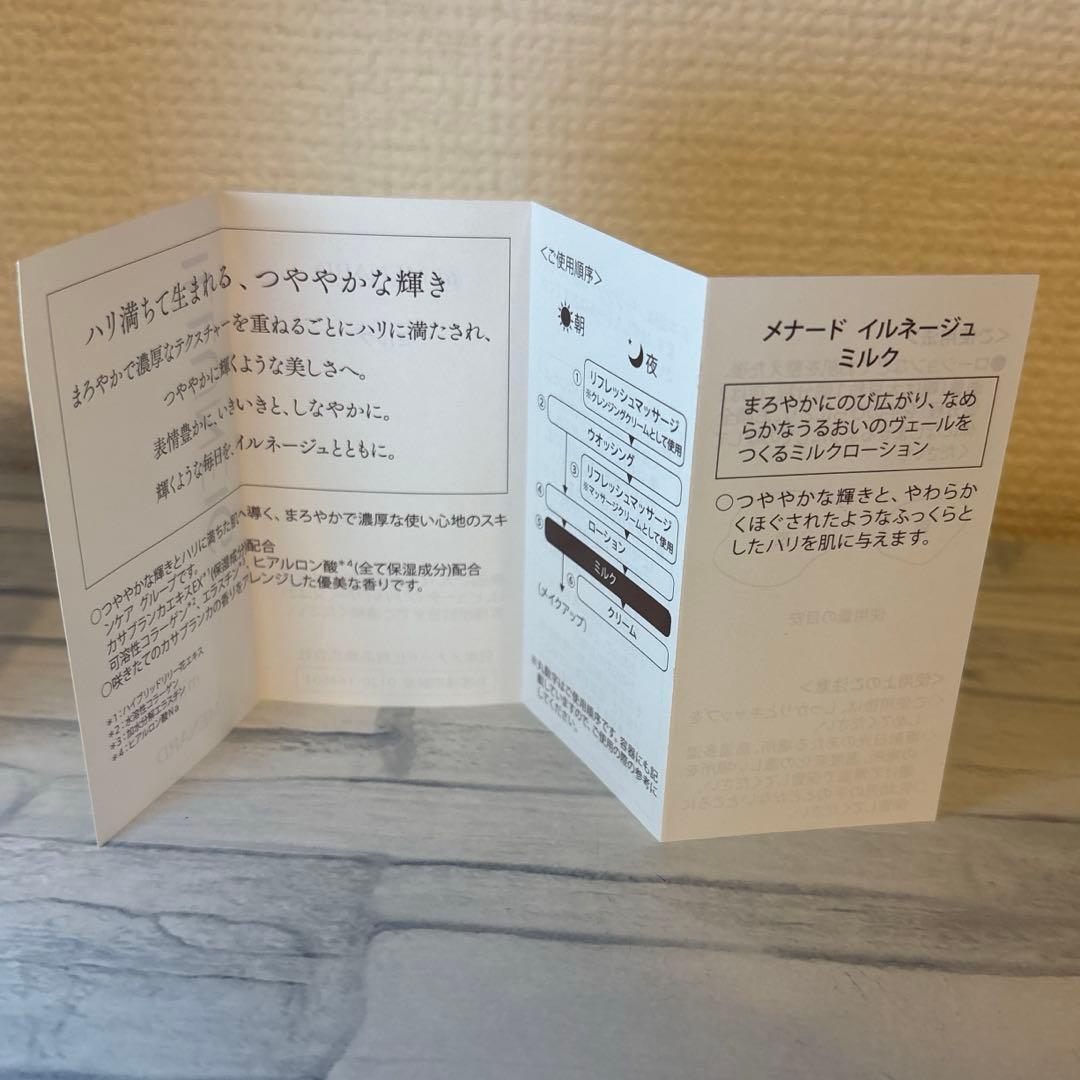 ハリ満ちて生まれる、つややかな輝き
まろやかで濃厚なテクスチャーを重ねるごとにハリに満たされ、
つややかに輝くような美しさへ。
表情豊かに、いきいきと、しなやかに。
輝くような毎日を、イルネージュとともに。
○つややかな輝きとハリに満ちた肌へ導く、まろやかで濃厚な使い心地のスキ
ンケア グループです。
カサブランカエキスEX*1(保湿成分)配合
可溶性コラーゲン*2、エラスチン*3、ヒアルロン酸*4(全て保湿成分)配合
○咲きたてのカサブランカの香りをアレンジした優美な香りです。
*1:ハイブリッドリリー花エキス
*2:水溶性コラーゲン
*3:加水分解エラスチン
*4:ヒアルロン酸Na
<ご使用順序>
朝
夜
① リフレッシュマッサージ
※クレンジングクリームとして使用
② ウオッシング
③ リフレッシュマッサージ
※マッサージクリームとして使用
④ ローション
⑤ ミルク
⑥ クリーム
(メイクアップ)
※丸数字はご使用順序です。容器にも記
載していますので、ご使用の際の参考に
してください。
メナード イルネージュ
ミルク
まろやかにのび広がり、なめ
らかなうるおいのヴェールを
つくるミルクローション
○つややかな輝きと、やわらか
くほぐされたようなふっくらと
したハリを肌に与えます。